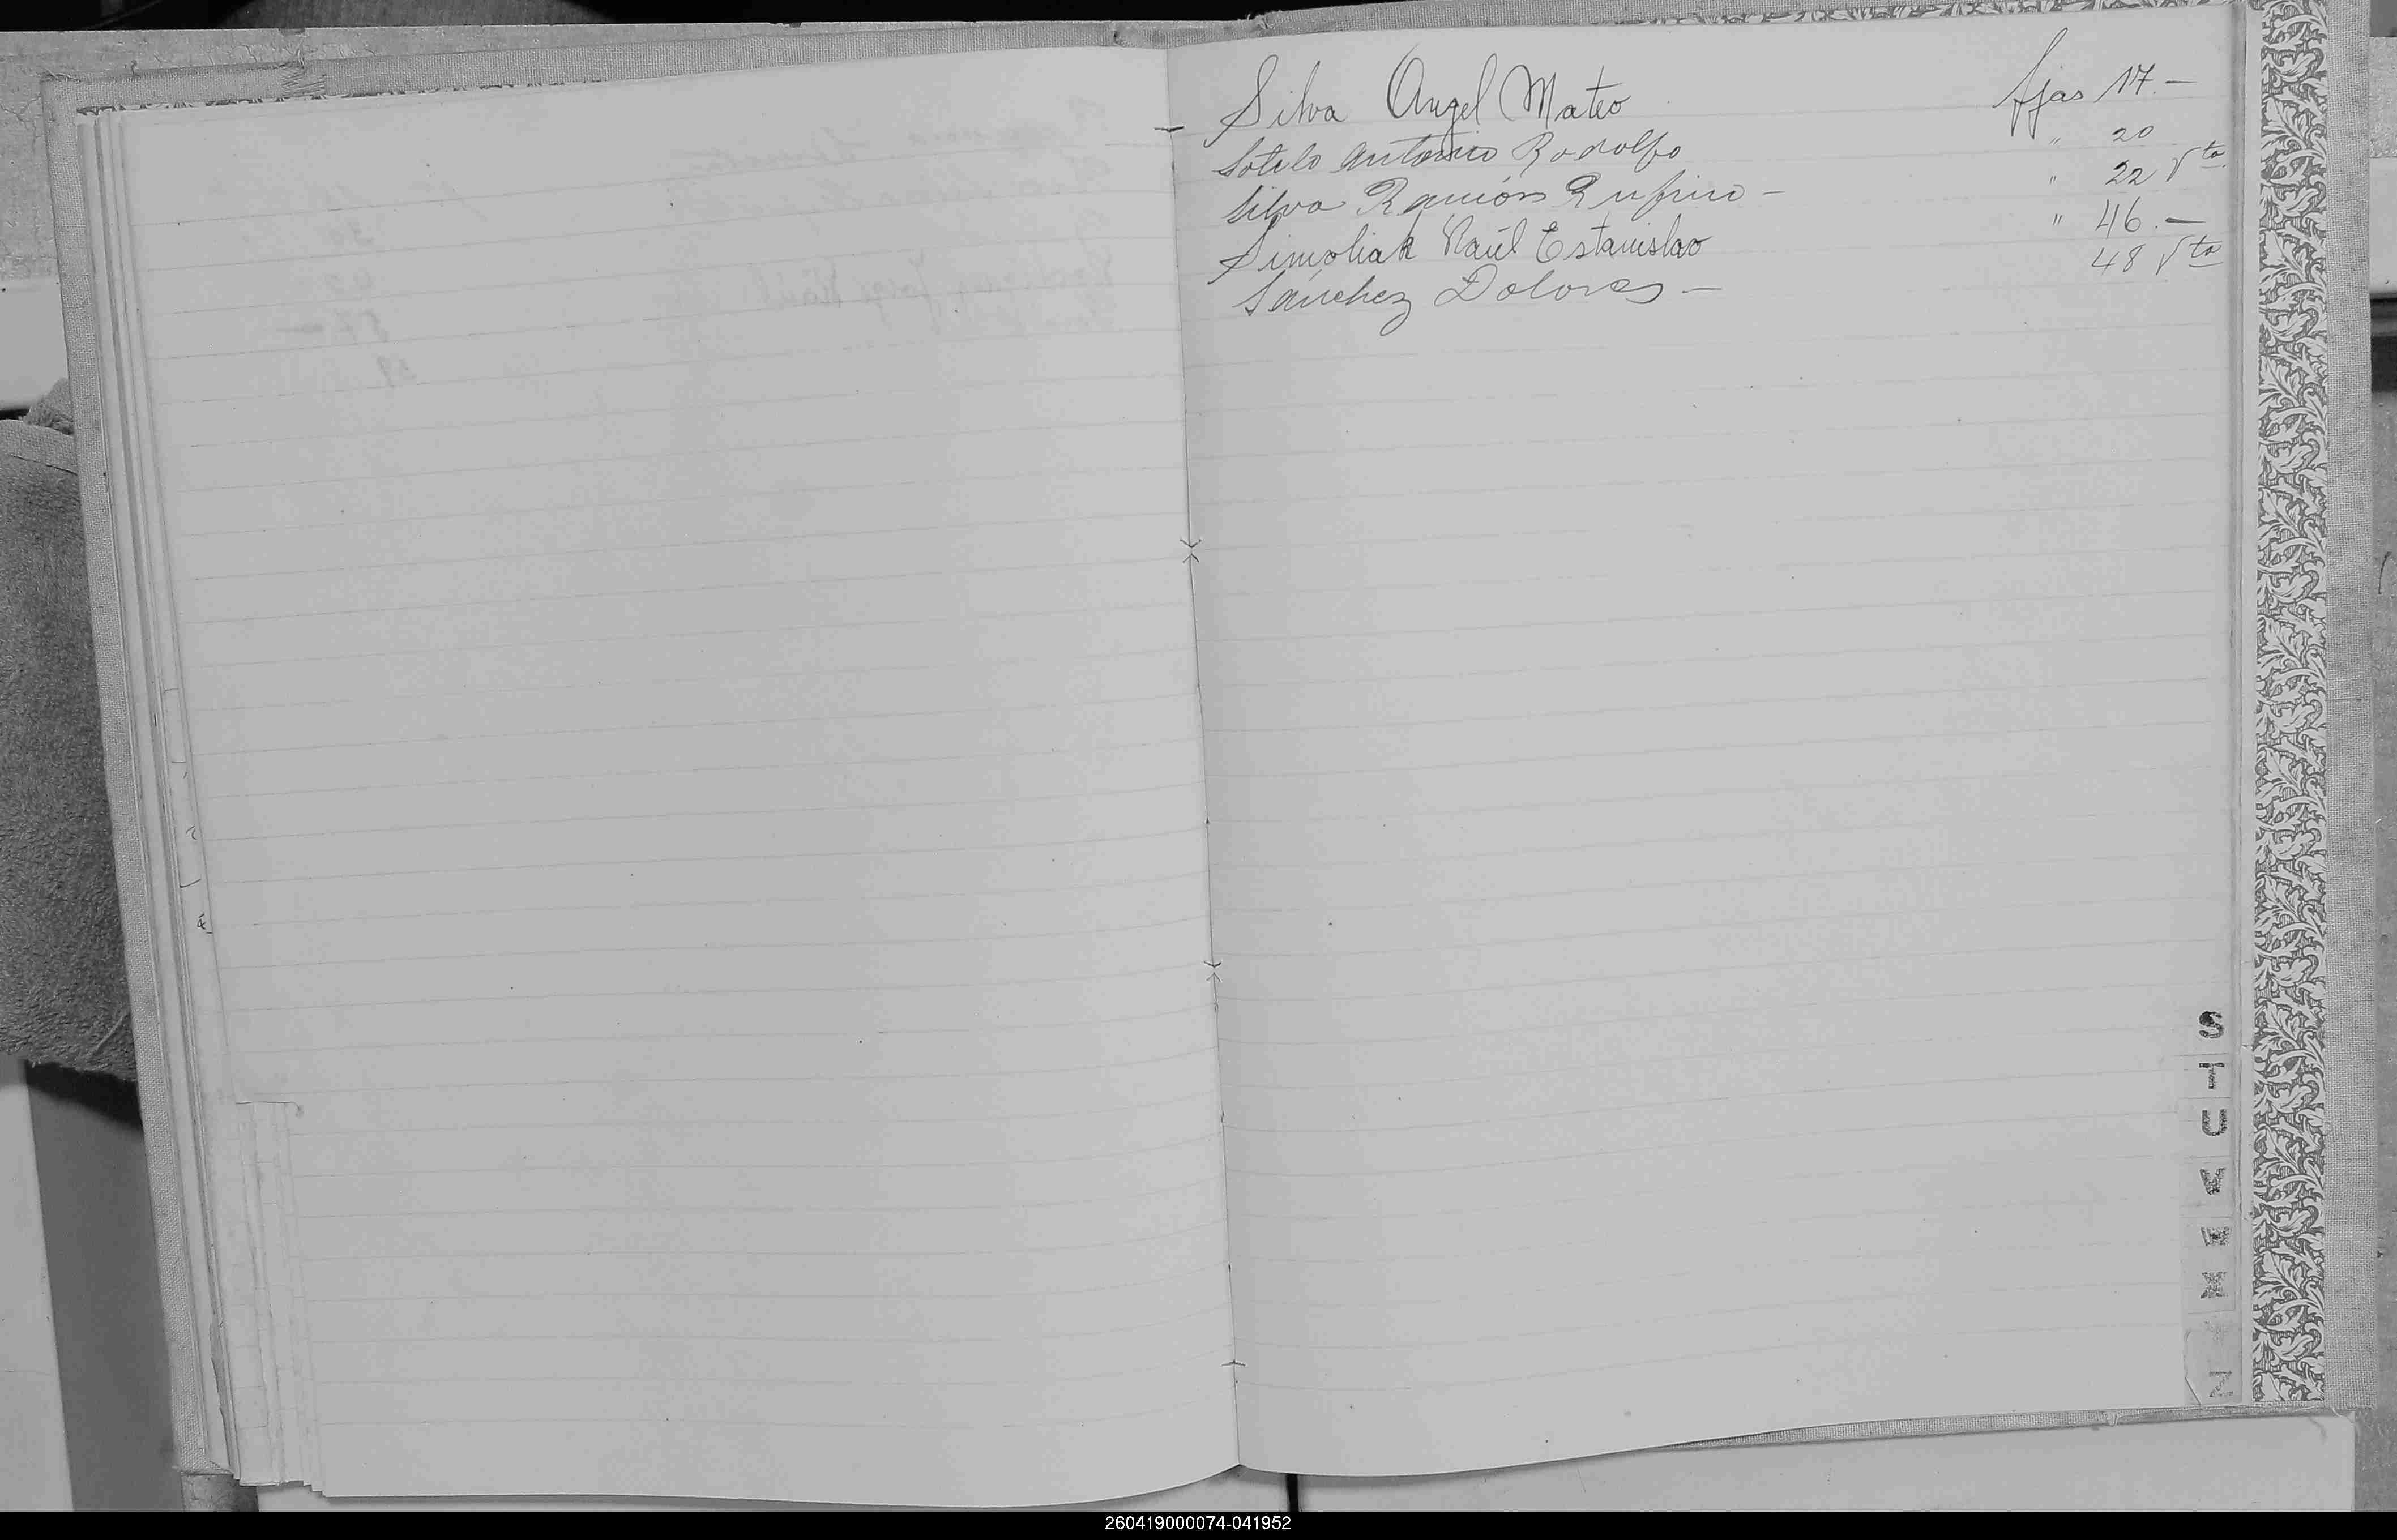 Silva Angel Mateo fjas 17.-
Sotelo Antonio Rodolfo " 20
Silva Ramón Rufino - " 22 Vto
Simoliak Raúl Estanislao " 46.-
Sánchez Dolores - 48 Vto
S
T
U
V
W
X
Z
260419000074-041952